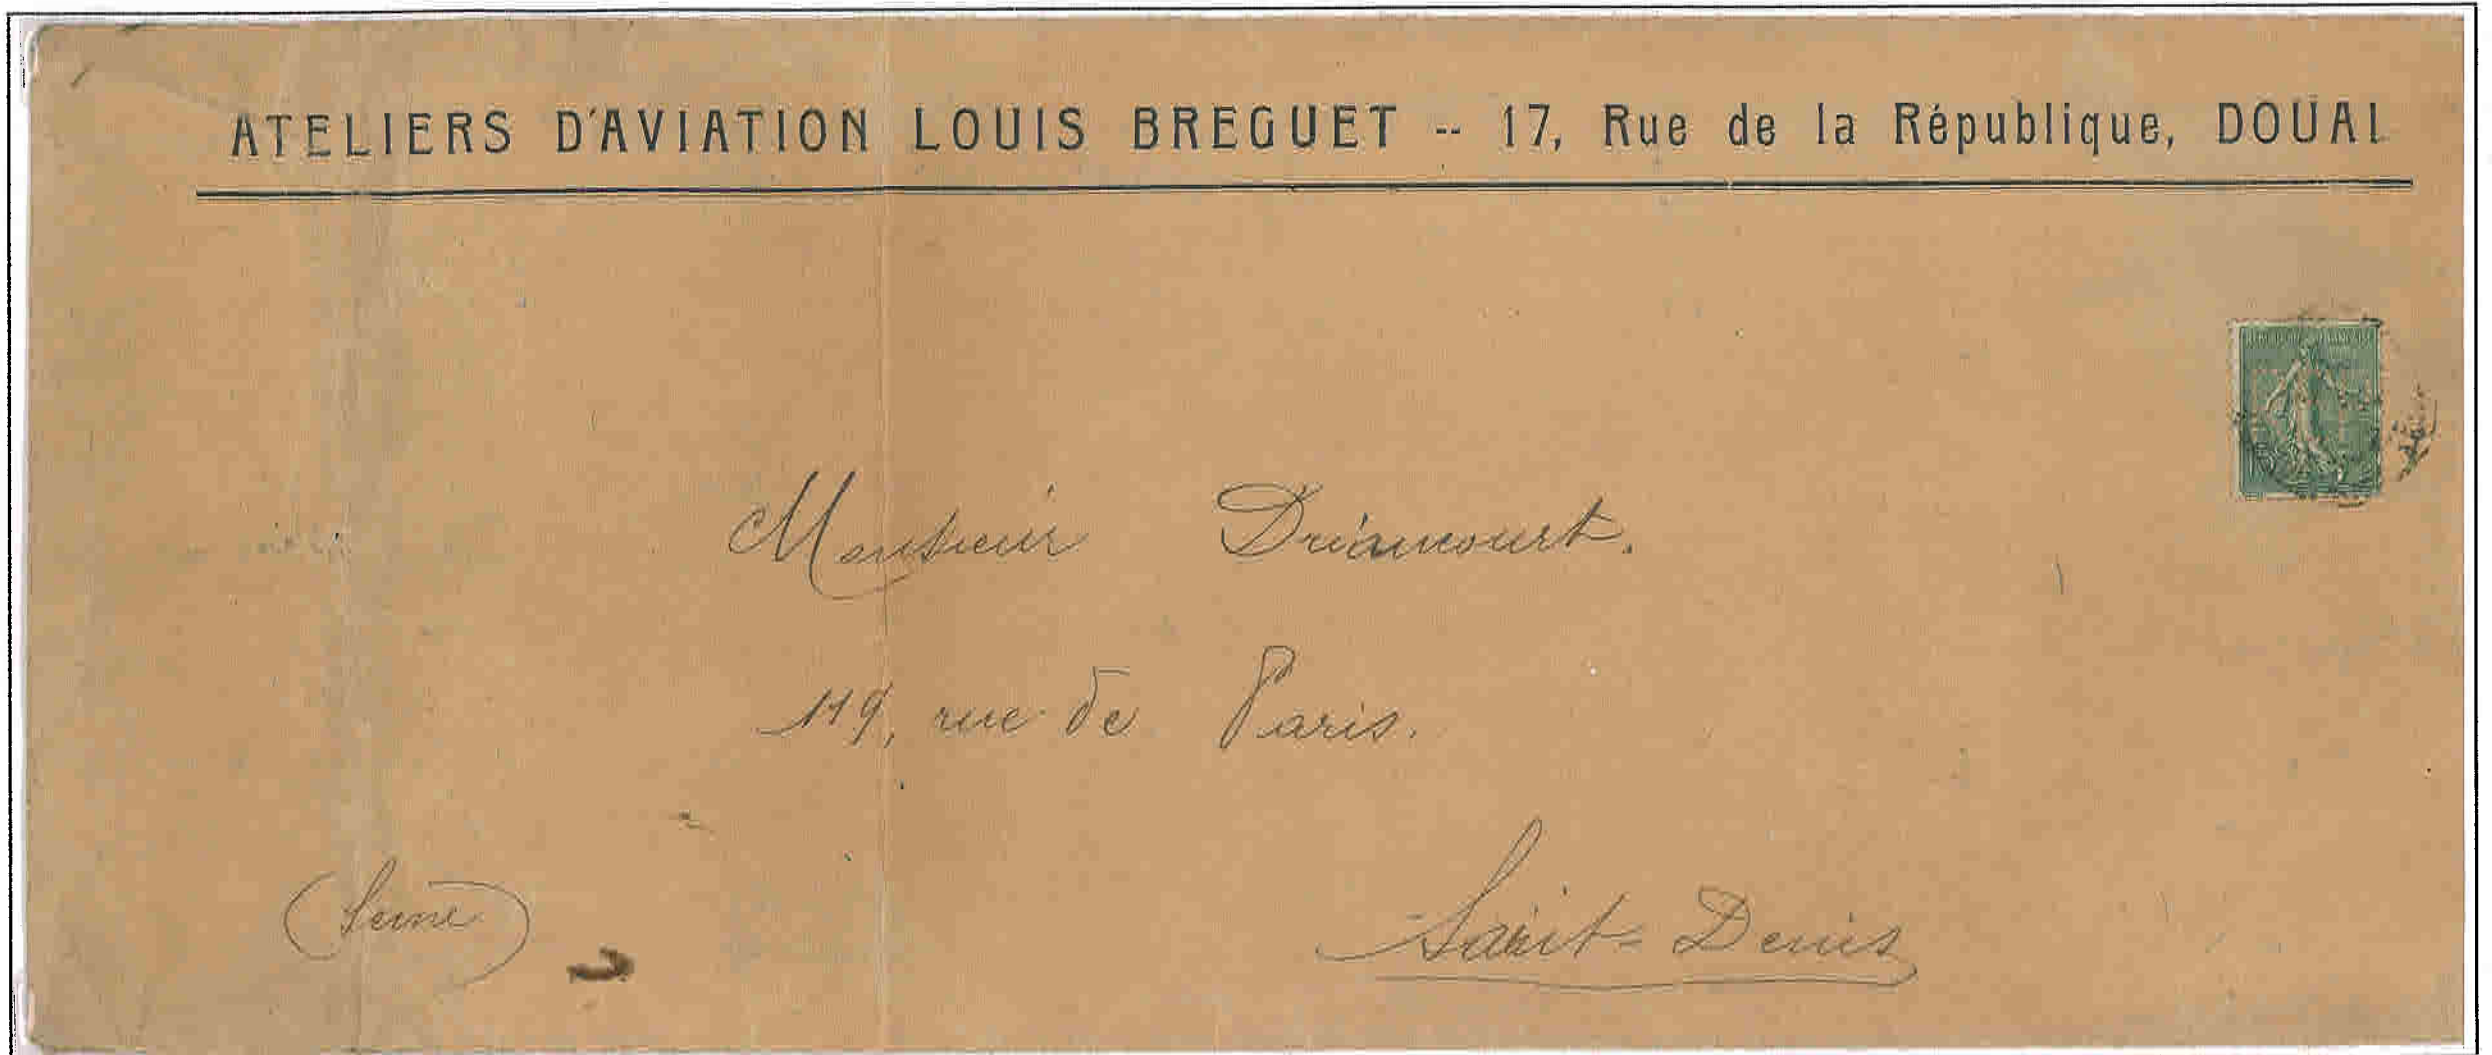 ATELIERS D'AVIATION LOUIS BREGUET -- 17, Rue de la République, DOUAI
Monsieur Driancourt.
119, rue de Paris.
(Seine)
Saint-Denis